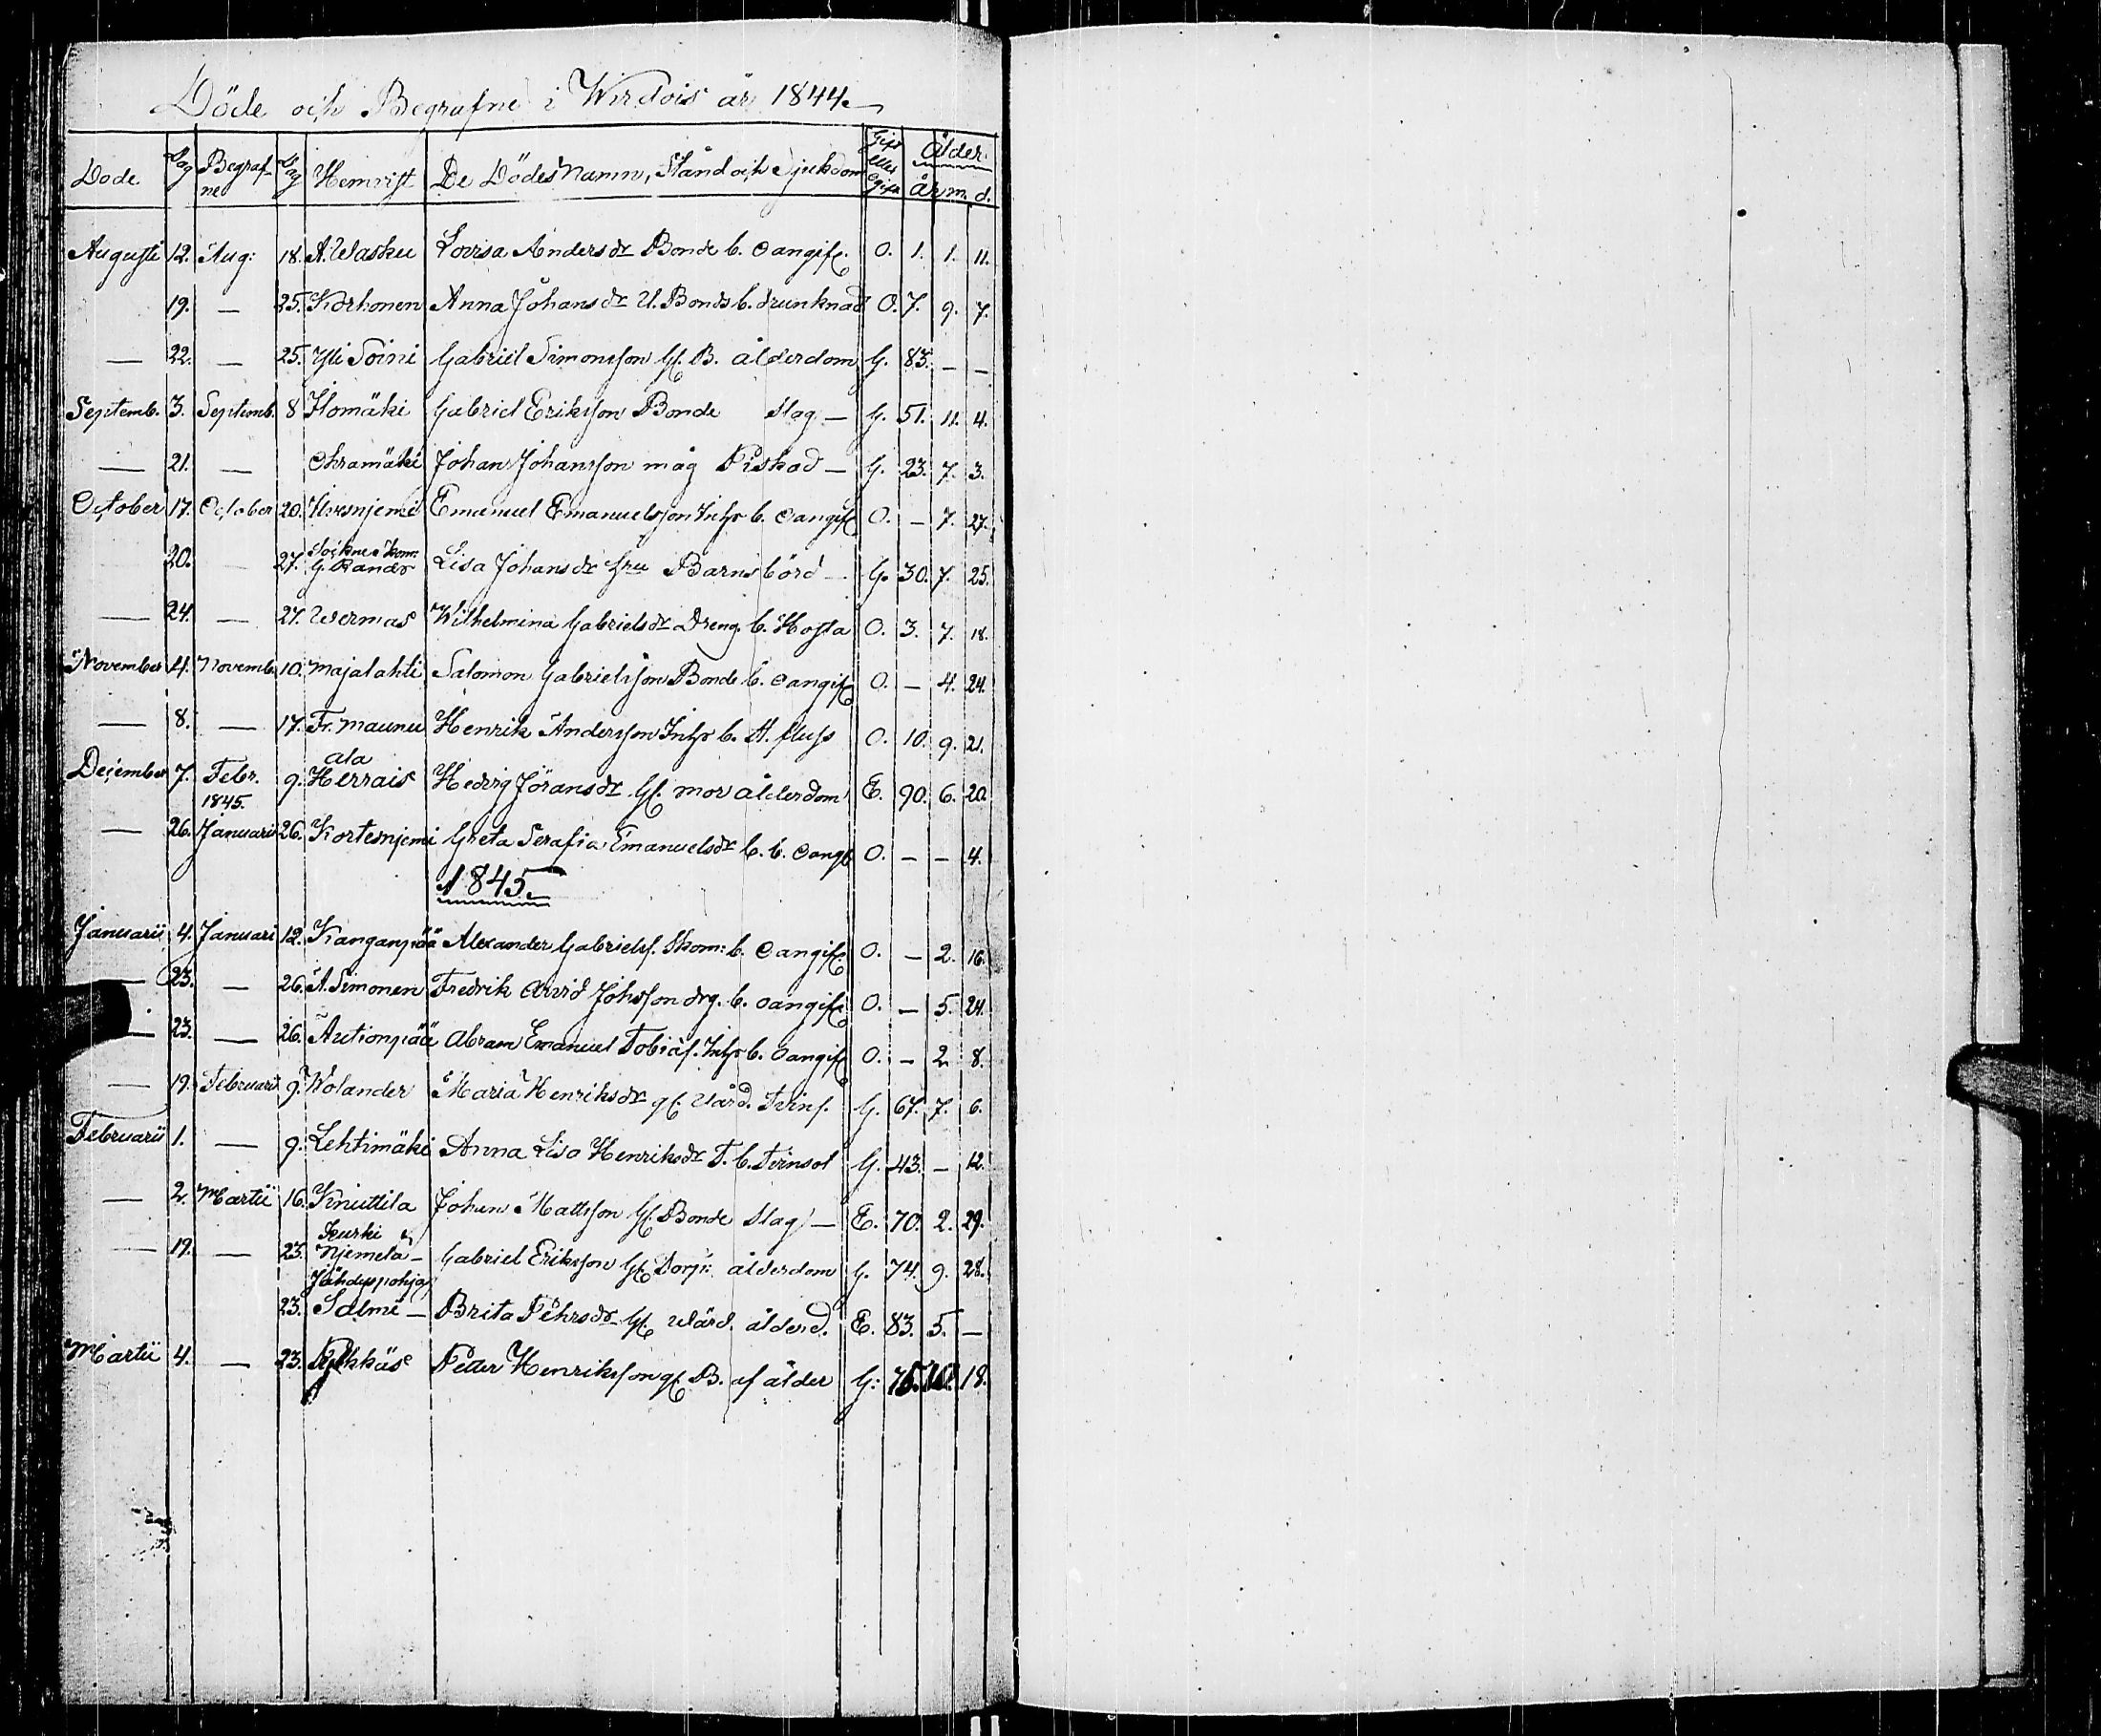 Döde och Begrafne i Wirdois år 1844.
Döde Dag Begrafne Dag Hemvist De Dödes Namn, Stånd och Sjukdom Gift eller ogift Ålder. år m. d.
Augusti 12. Aug: 18. A. Wasku Lovisa Andersdr Bonde b. oangif. O. 1. 1. 11.
19. — 25. Korhonen Anna Johansdr U. Bonds b. drunknad O. 7. 9. 7.
— 22. — 25. Yli Soini Gabriel Simonsson Gl. B. ålderdom G. 83. — —
Septemb. 3. Septemb. 8 Ilomäki Gabriel Eriksson Bonde Slag — G. 51. 11. 4.
— 21. — Ohramäki Johan Johansson måg Piskad — G. 23. 7. 3.
October 17. October 20. Emanuel Emanuelsson Inhs b. oangif O. — 7. 27.
20. — 27. Sockne skom: G. Rander Lisa Johansdr hru Barnsbörd — G. 30. 7. 25.
— 24. — 27. Wermas Wilhelmina Gabrielsdr Dreng. b. Hosta O. 3. 7. 18.
November 4. Novemb. 10. Majalahti Salomon Gabrielsson Bonde b. oangif O. — 4. 24.
— 8. — 17. Fr. Maunu Henrik Andersson Inhs b. H. fluss O. 10. 9. 21.
December 7. Febr. 1845. 9. Ala Herrais Hedvig Jöransdr Gl. mor ålderdom E. 90. 6. 20.
— 26. Januarii 26. Kortesnjemi Greta Serafia Emanuelsdr b. b. oangf O. — — 4.
1845.
Januarii 4. Januari 12. Kanganpää Alexander Gabrielss. Skom: b. oangif. O. — 2. 16.
— 23. — 26. A. Simonen Fredrik Arvid Johsson drg. b. oangif O. — 5. 24.
— 23. — 26. Autionpää Abram Emanuel Tobias. Inhs b. oangif O. — 2. 8.
— 19. Februari 9. Wolander Maria Henriksdr gl. Värd. Tvins. G. 67. 7. 6.
Februarii 1. — 9. Lehtimäki Anna Lisa Henriksdr T. b. Tvinsot G. 43. — 12.
— 2. Martii 16. Knuttila Johan Mattsson Gl. Bonde Slag — E. 70. 2. 29.
— 19. — 23. Kurki Njemelä — Gabriel Eriksson Gl. Torp: ålderdom G. 74. 9. 28.
23. Jähdyspohja Salmi — Brita Pehrsdr Gl. Värd. ålderd. E. 83. 5. —
Martii 4. — 23. Petter Henriksson gl. B. af ålder G: 75. 10. 18.